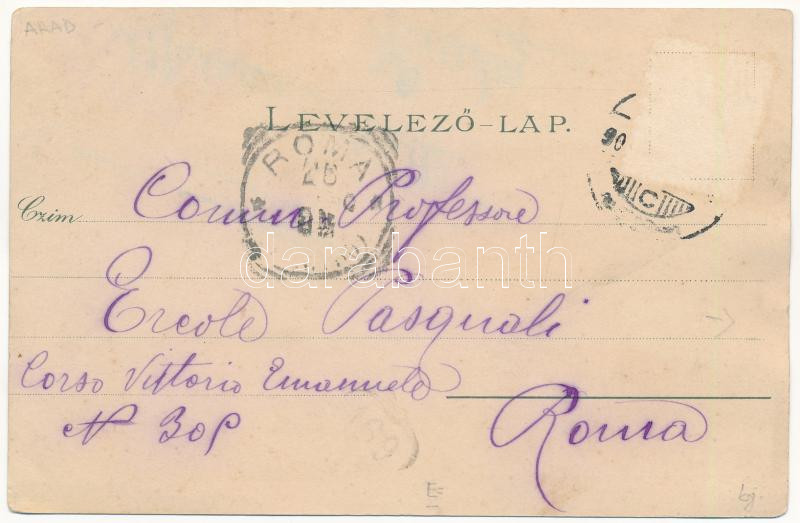 ARAD
LEVELEZŐ-LAP.
ROMA
26
90
C
Czim
Comm Professore
Ercole Pasquali
Corso Vittorio Emanuele
N 305
Roma
darabanth
E
bj.